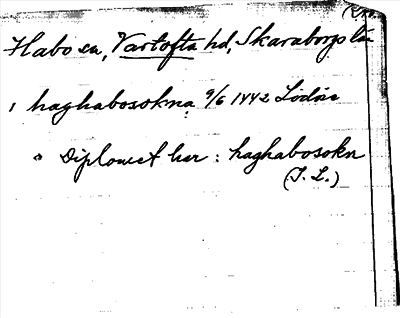 Habo sn, Vartofta hd, Skaraborgs län
1 haghabosokna 9/6 1442 Lödöse
° Diplomet har : haghabosokn
(I. L.)